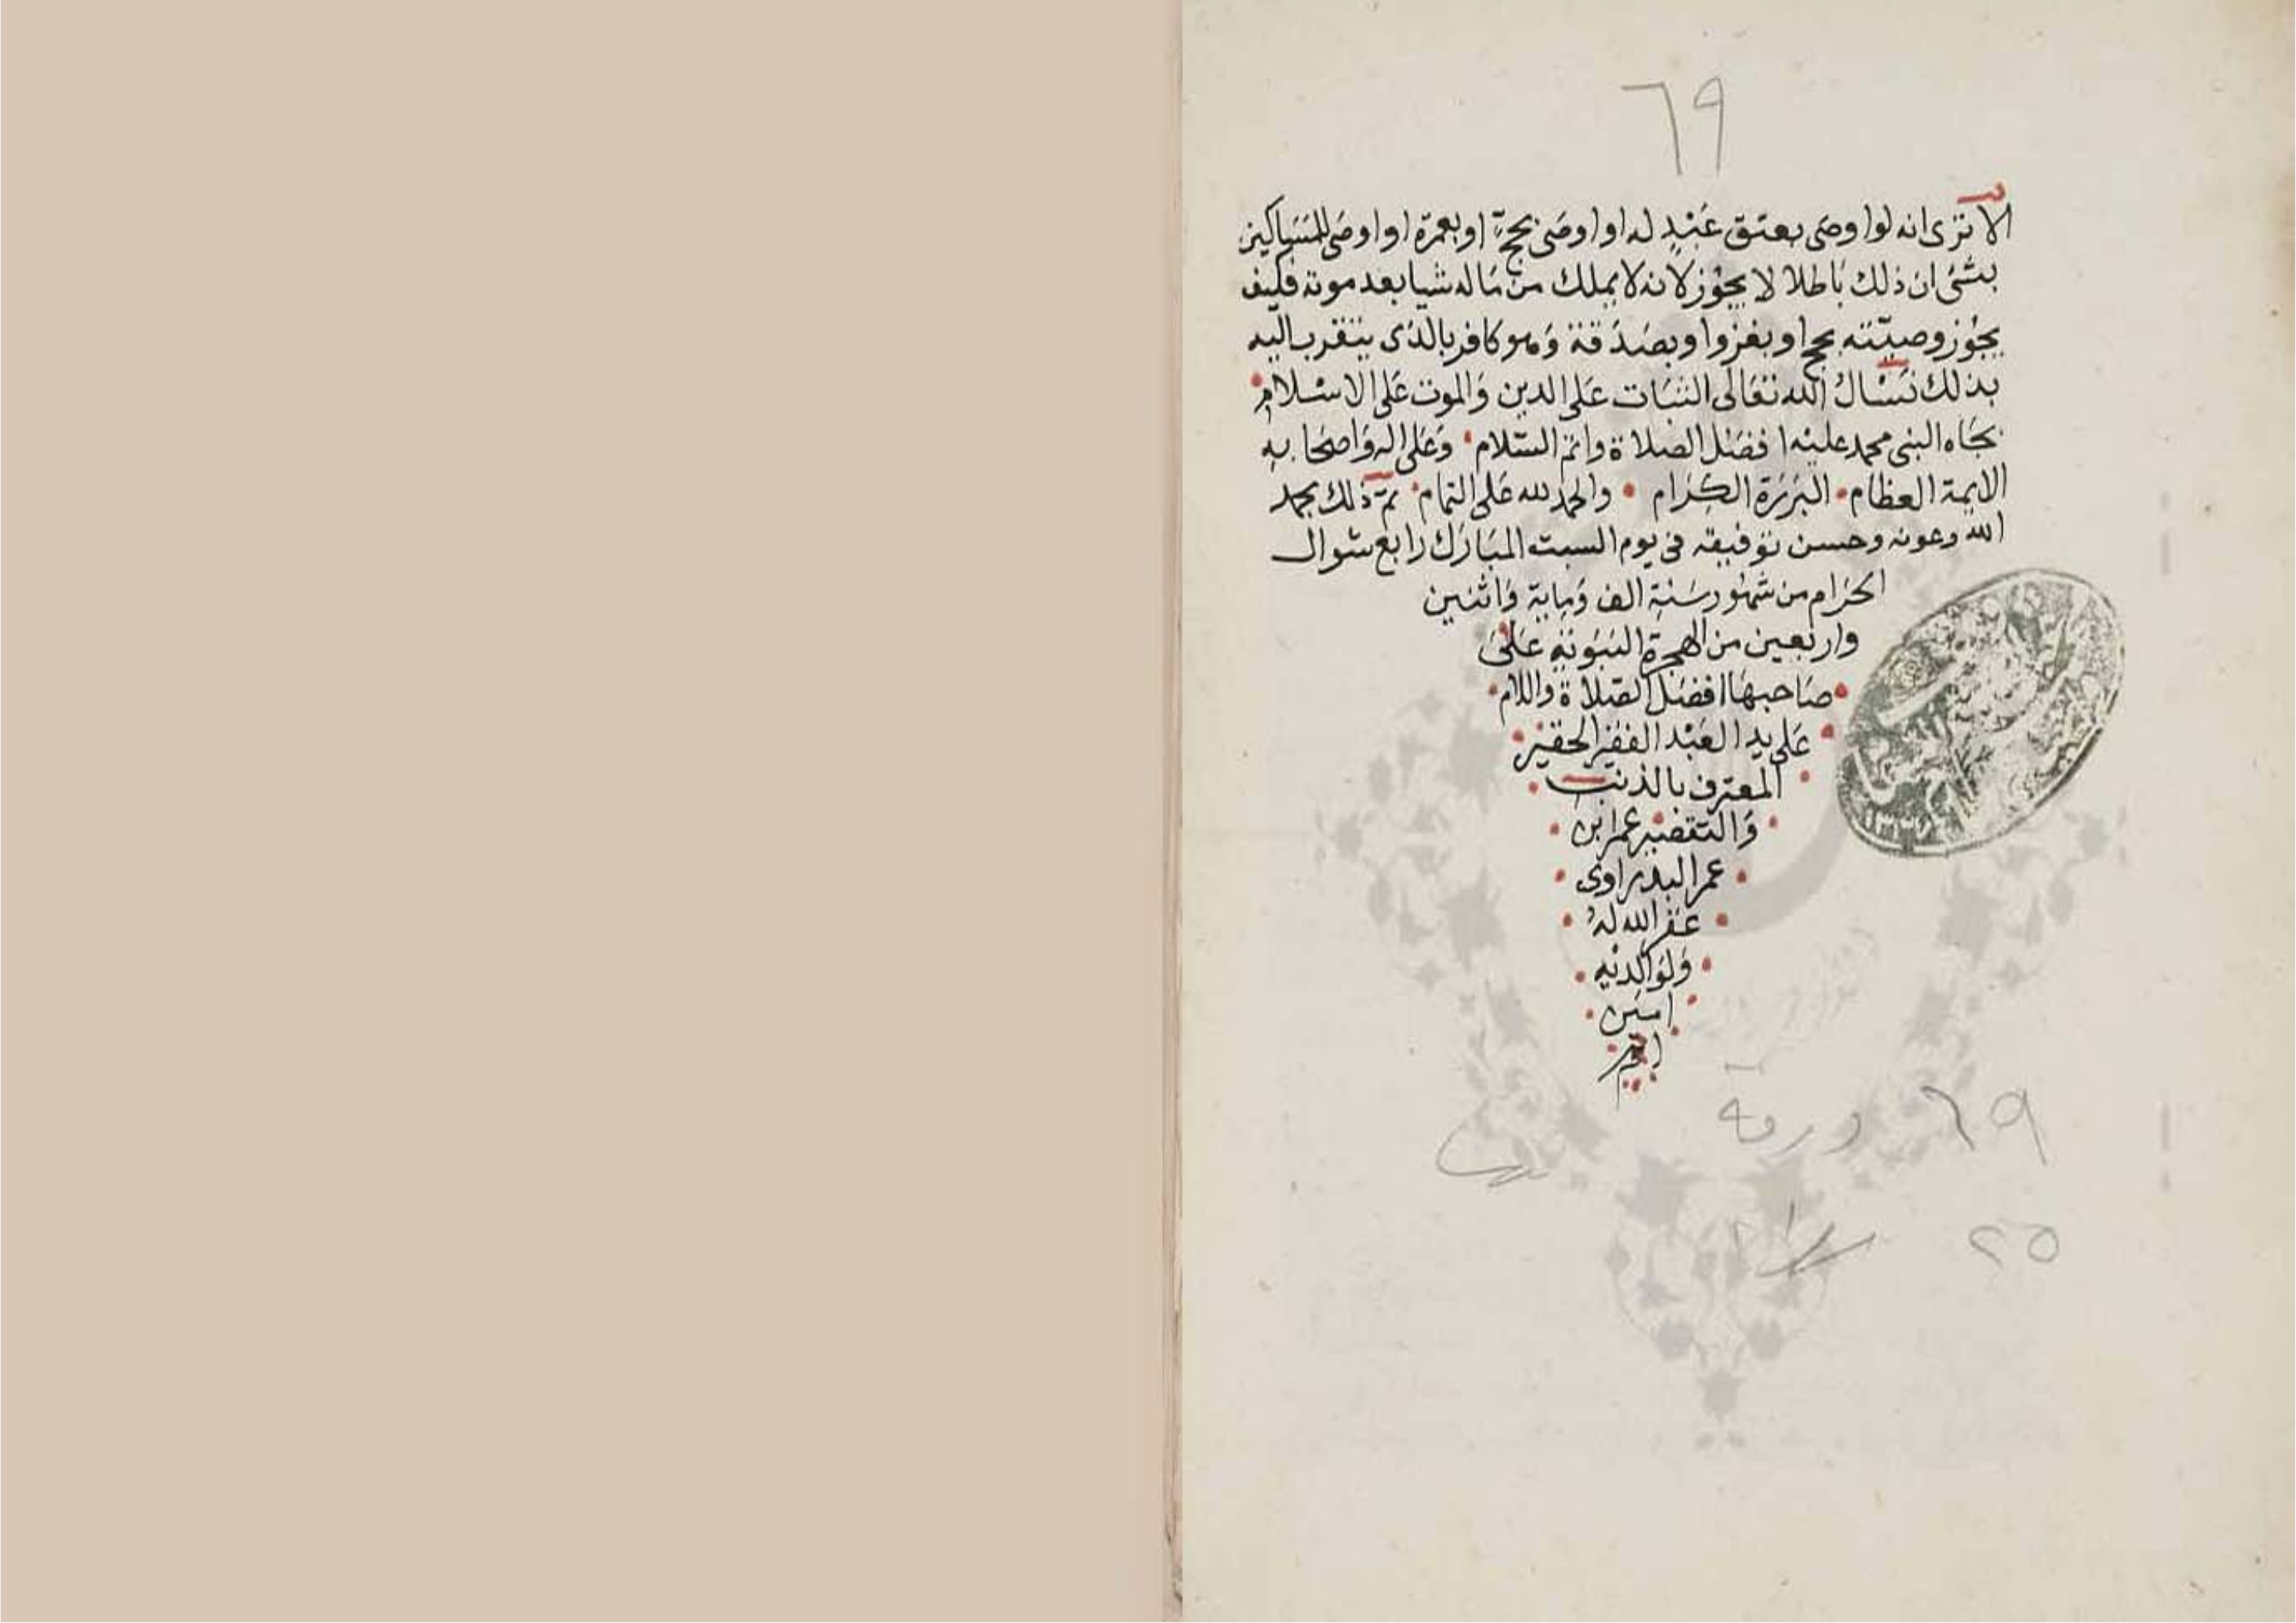 ٦٩
الا ترى انه لو اوصى بعتق عبد له او اوصى بحج او بعمرة او اوصى للمساكين
بشئ ان ذلك باطلا لا يجوز لانه لا يملك من ماله شيا بعد موته فكيف
يجوز وصيته بحج او بغزو او بصدقة وهو كافر بالذى يتقرب اليه
بذلك نسال الله تعالى الثبات على الدين والموت على الاسلام
بجاه النبى محمد عليه افضل الصلاة واتم السلام وعلى اله واصحابه
الايمة العظام البررة الكرام والحمد لله على التمام تم ذلك بحمد
الله وعونه وحسن توفيقه فى يوم السبت المبارك رابع شوال
الحرام من شهور سنة الف وماية واثنين
واربعين من الهجرة النبوية على
صاحبها افضل الصلاة واللام
على يد العبد الفقير الحقير
المعترف بالذنب
والتقصير عمر ابن
عمر البدراوى
غفر الله له
ولوالديه
امين
٦٩ ورقة
٢٥